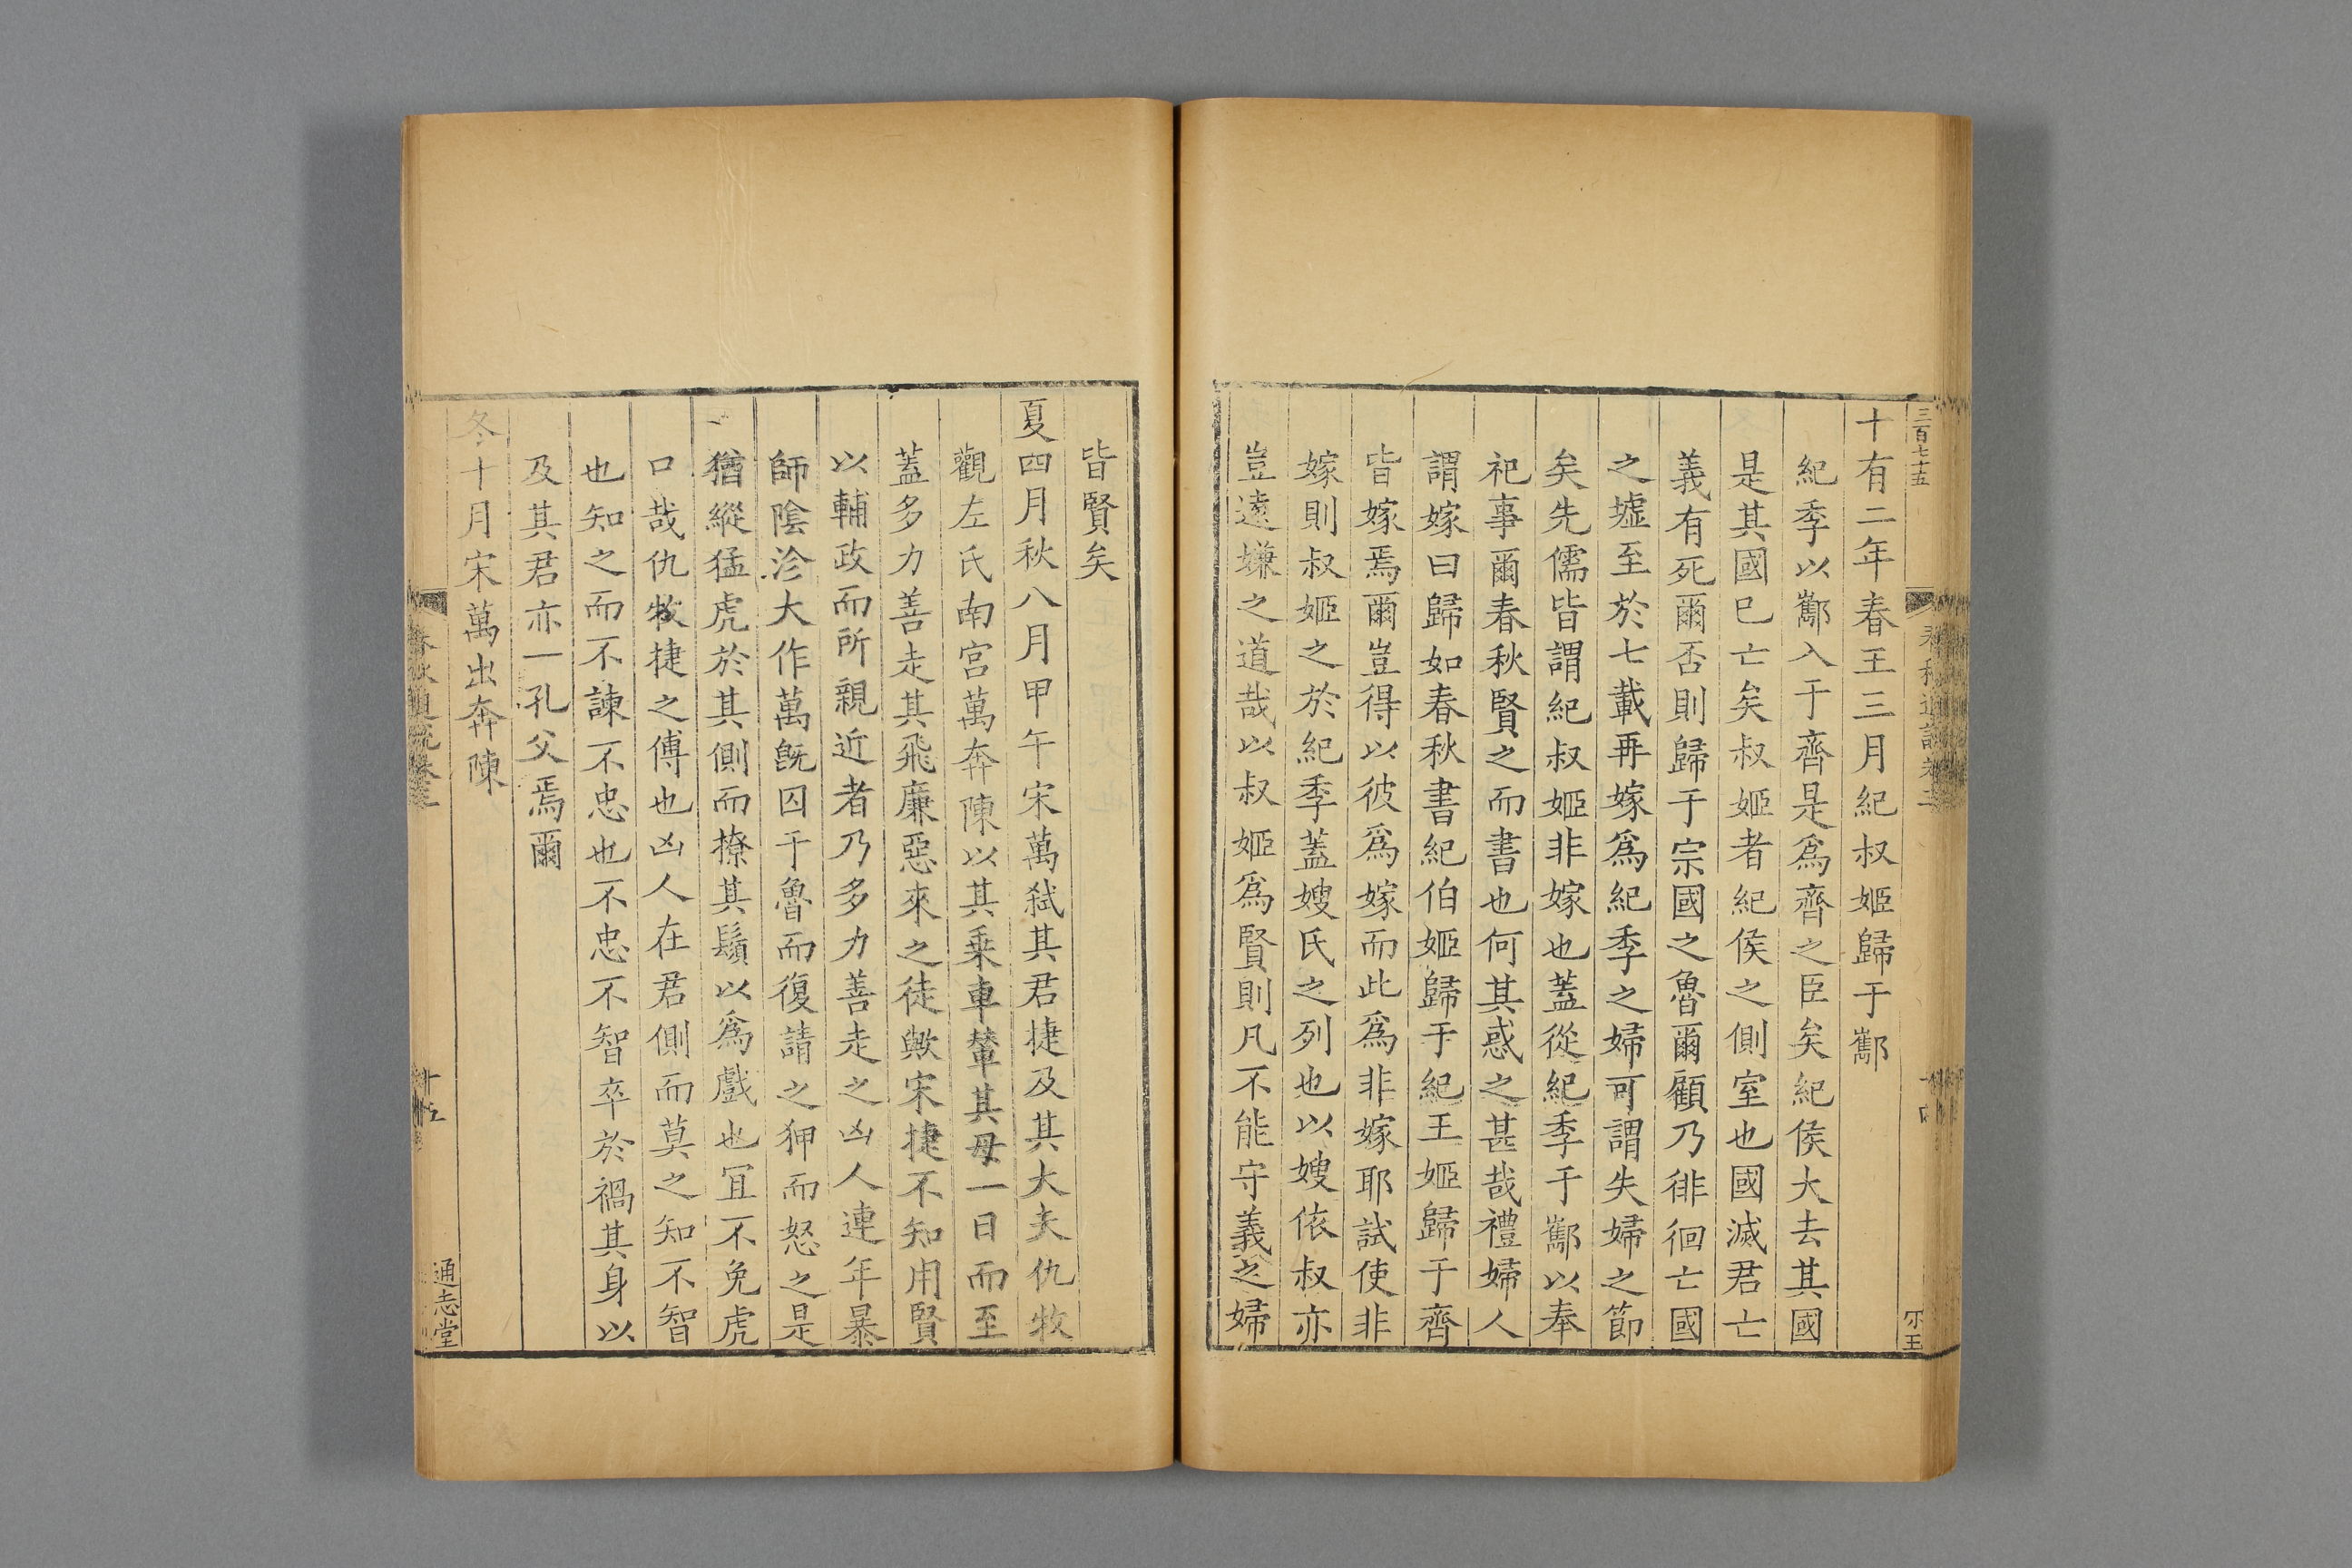 三百七十五
十有二年春王三月紀叔姬歸于酅
紀季以酅入于齊是爲齊之臣矣紀侯大去其國
是其國巳亡矣叔姬者紀侯之側室也國滅君亡
義有死爾否則歸于宗國之魯爾顧乃徘徊亡國
之墟至於七載再嫁爲紀季之婦可謂失婦之節
矣先儒皆謂紀叔姬非嫁也蓋從紀季于酅以奉
祀事爾春秋賢之而書也何其惑之甚哉禮婦人
謂嫁曰歸如春秋書紀伯姬歸于紀王姬歸于齊
皆嫁焉爾豈得以彼爲嫁而此爲非嫁耶試使非
嫁則叔姬之於紀季蓋嫂氏之列也以嫂依叔亦
豈遠嫌之道哉以叔姬爲賢則凡不能守義之婦
皆賢矣
夏四月秋八月甲午宋萬弑其君捷及其大夫仇牧
觀左氏南宮萬奔陳以其乗車輦其母一日而至
蓋多力善走其飛廉惡來之徒歟宋捷不知用賢
以輔政而所親近者乃多力善走之凶人連年暴
師陰沴大作萬旣囚于魯而復請之狎而怒之是
猶縱猛虎於其側而撩其鬚以爲戲也冝不免虎
口哉仇牧捷之傅也凶人在君側而莫之知不智
也知之而不諫不忠也不忠不智卒於禍其身以
及其君亦一孔父焉爾
冬十月宋萬出奔陳
春秋通說卷三
十五
通志堂